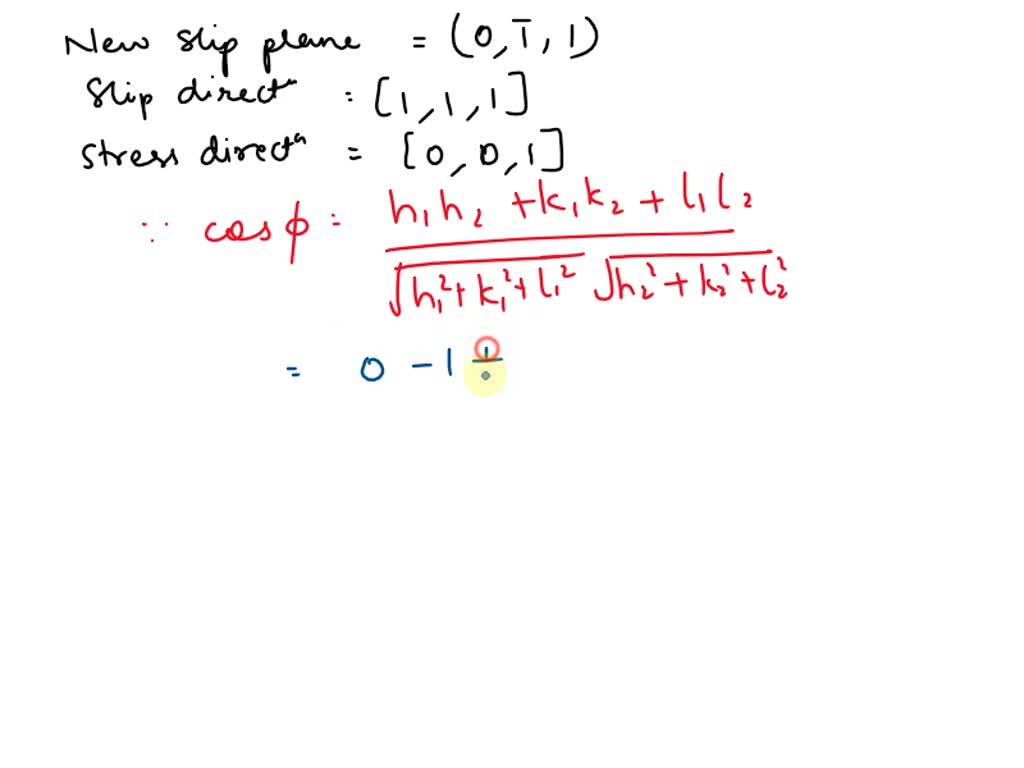 New slip plane = (0, 1̅, 1)
Slip directⁿ = [1, 1, 1]
Stress directⁿ = [0, 0, 1]
∵ cos ϕ = h₁h₂ + k₁k₂ + l₁l₂
√h₁² + k₁² + l₁² √h₂² + k₂² + l₂²
= 0 - 1